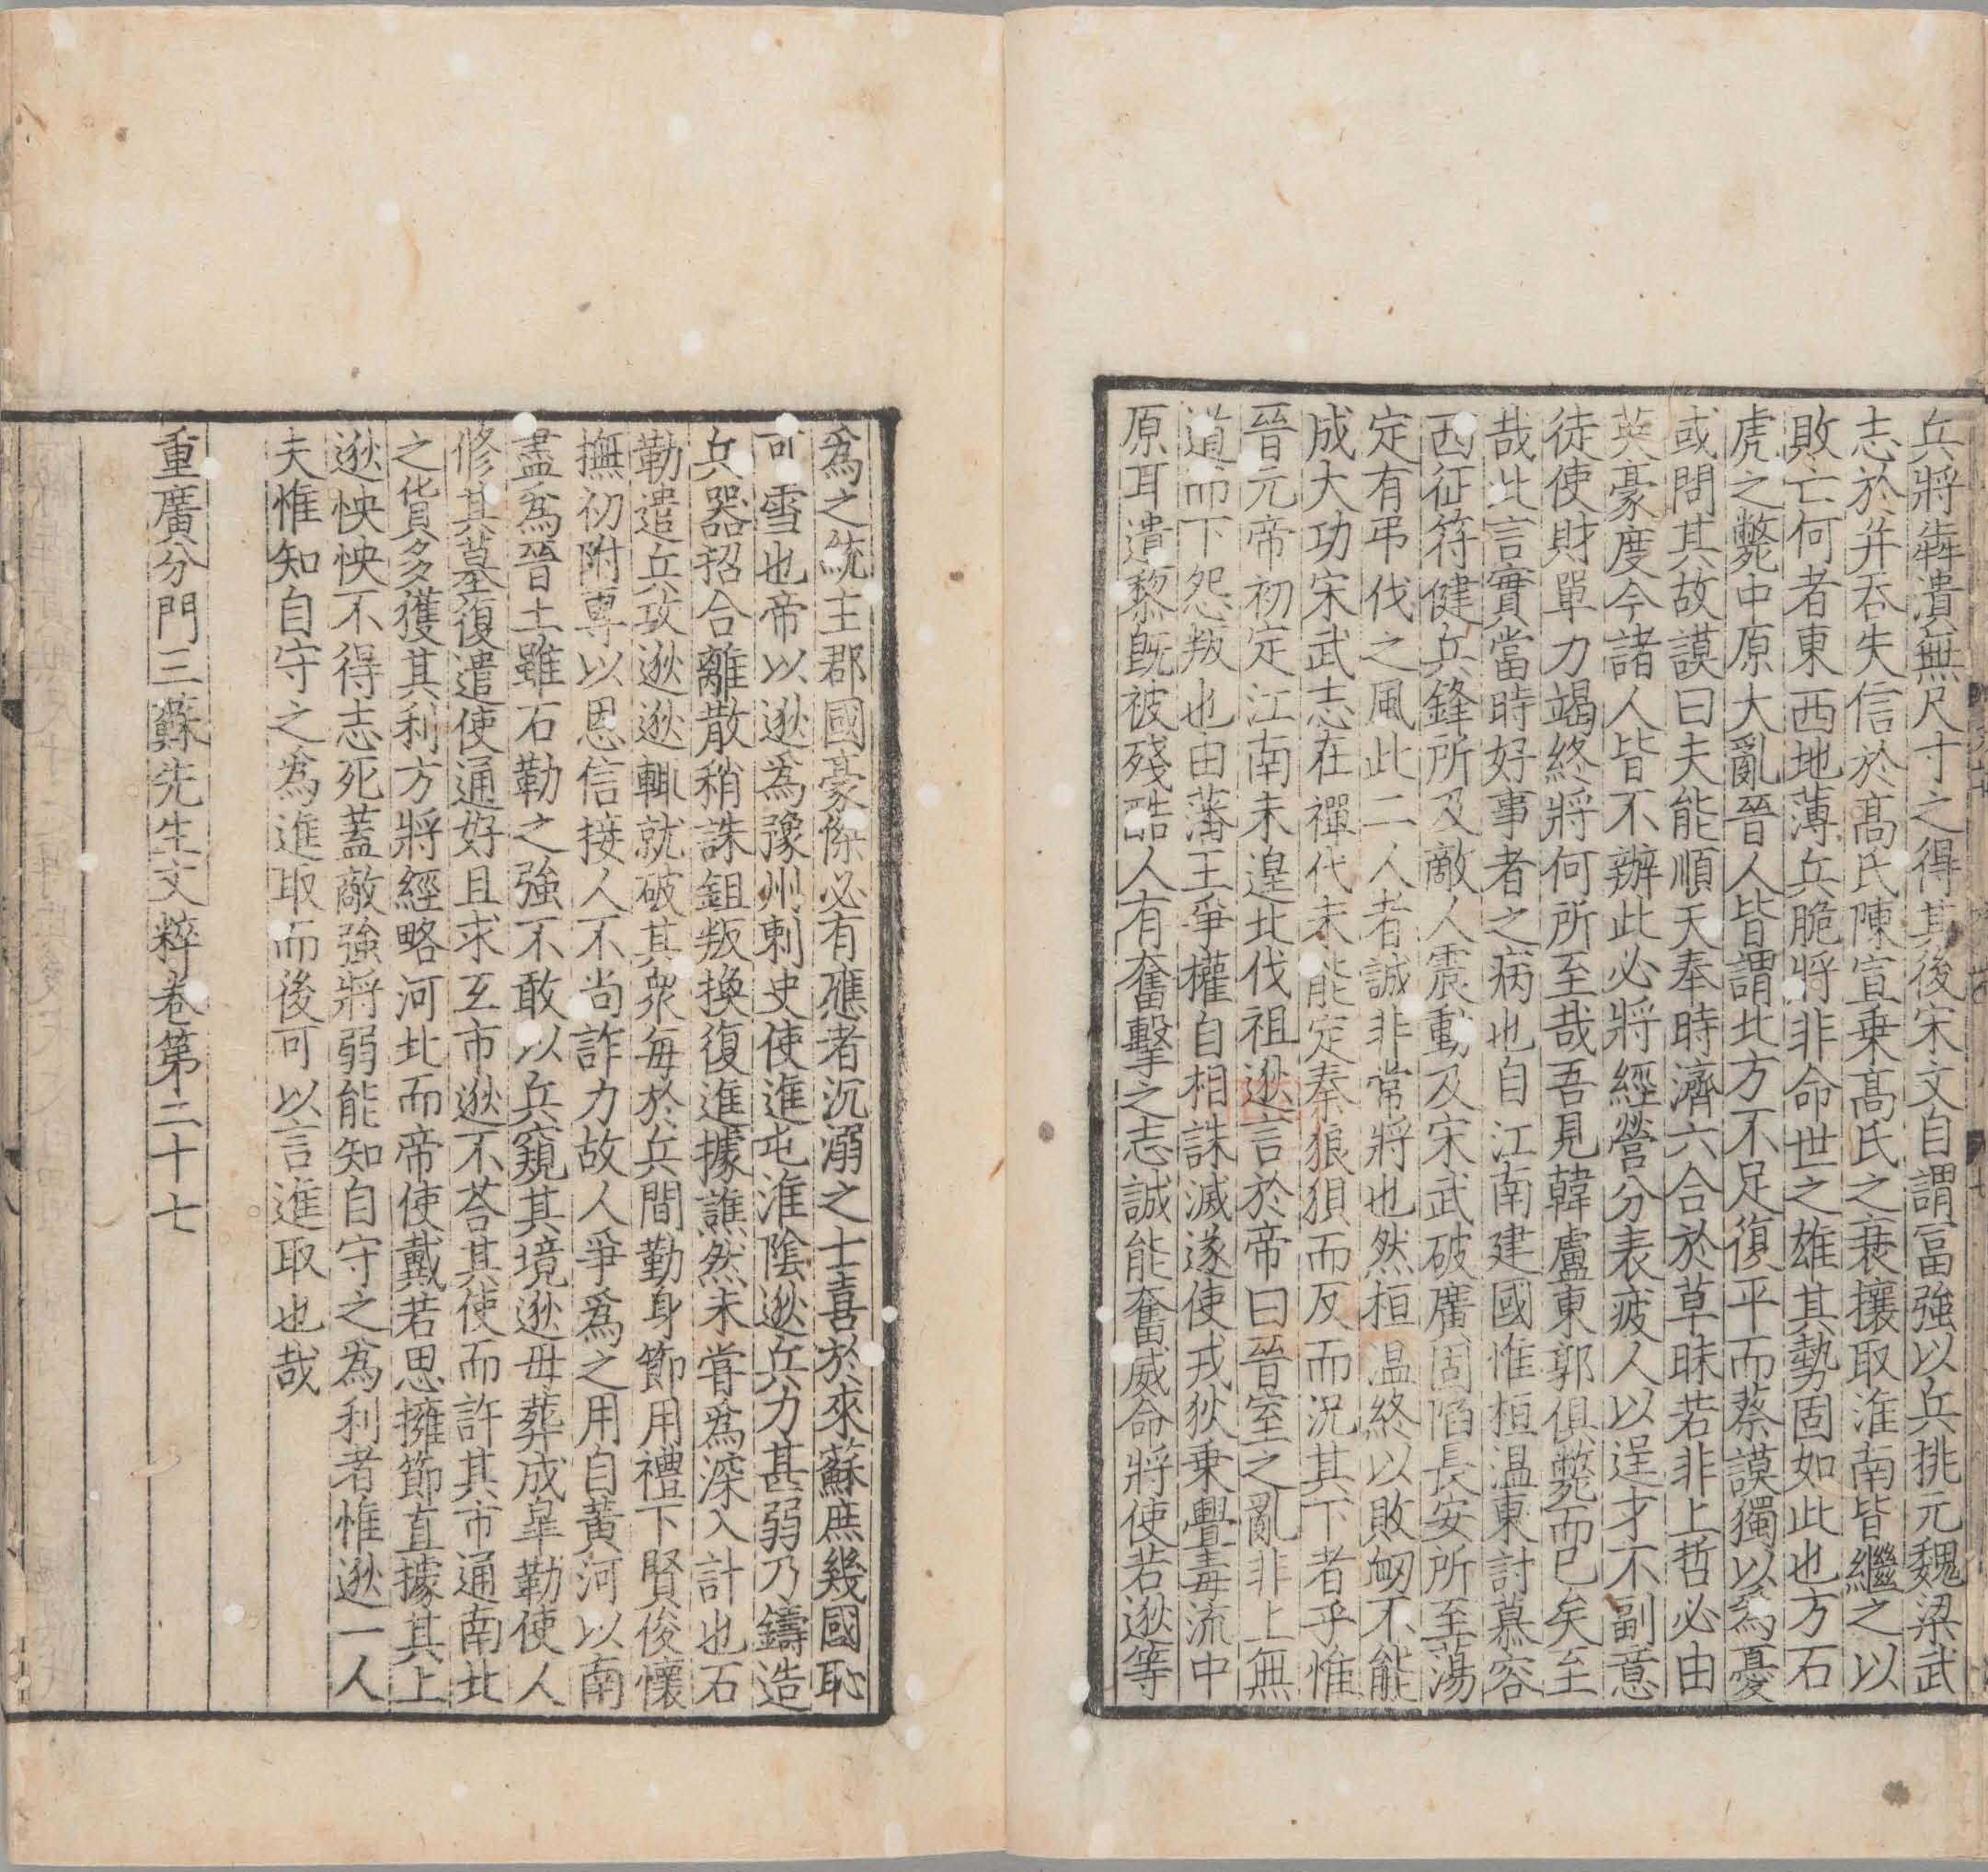 兵將犇潰無尺寸之得其後宋文自謂富強以兵挑元魏梁武
志於并吞失信於髙氏陳宣乗髙氏之衰攘取淮南皆繼之以
敗亡何者東西地薄兵脆將非命世之雄其勢固如此也方石
虎之斃中原大亂晉人皆謂北方不足復平而蔡謨獨以為憂
或問其故謨曰夫能順天奉時濟六合於草昧若非上哲必由
英豪度今諸人皆不辦此必將經營分表疲人以逞才不副意
徒使財單力竭終將何所至哉吾見韓盧東郭俱斃而已矣至
哉此言實當時好事者之病也自江南建國惟桓温東討慕容
西征苻健兵鋒所及敵人震動及宋武破廣固陷長安所至蕩
定有弔伐之風此二人者誠非常將也然桓温終以敗衂不能
成大功宋武志在禪代未能定秦狼狽而反而況其下者乎惟
晉元帝初定江南未遑北伐祖逖言於帝曰晉室之亂非上無
道而下怨叛也由藩王爭權自相誅滅遂使戎狄乗釁毒流中
原耳遺黎旣被殘酷人有奮擊之志誠能奮威命將使若逖等
為之統主郡國豪傑必有應者沉溺之士喜於來蘇庶幾國恥
可雪也帝以逖為豫州刺史使進屯淮隂逖兵力甚弱乃鑄造
兵器招合離散稍誅鉏叛換復進據譙然未甞爲深入計也石
勒遣兵攻逖逖輒就破其衆毎於兵間勤身節用禮下賢俊懷
撫初附專以恩信接人不尚詐力故人爭爲之用自黃河以南
盡爲晉土雖石勒之強不敢以兵窺其境逖毋葬成臯勒使人
修其墓復遣使通好且求互市逖不荅其使而許其市通南北
之貨多獲其利方將經略河北而帝使戴若思擁節直據其上
逖怏怏不得志死蓋敵強將弱能知自守之為利者惟逖一人
夫惟知自守之為進取而後可以言進取也哉
重廣分門三蘇先生文粹卷第二十七